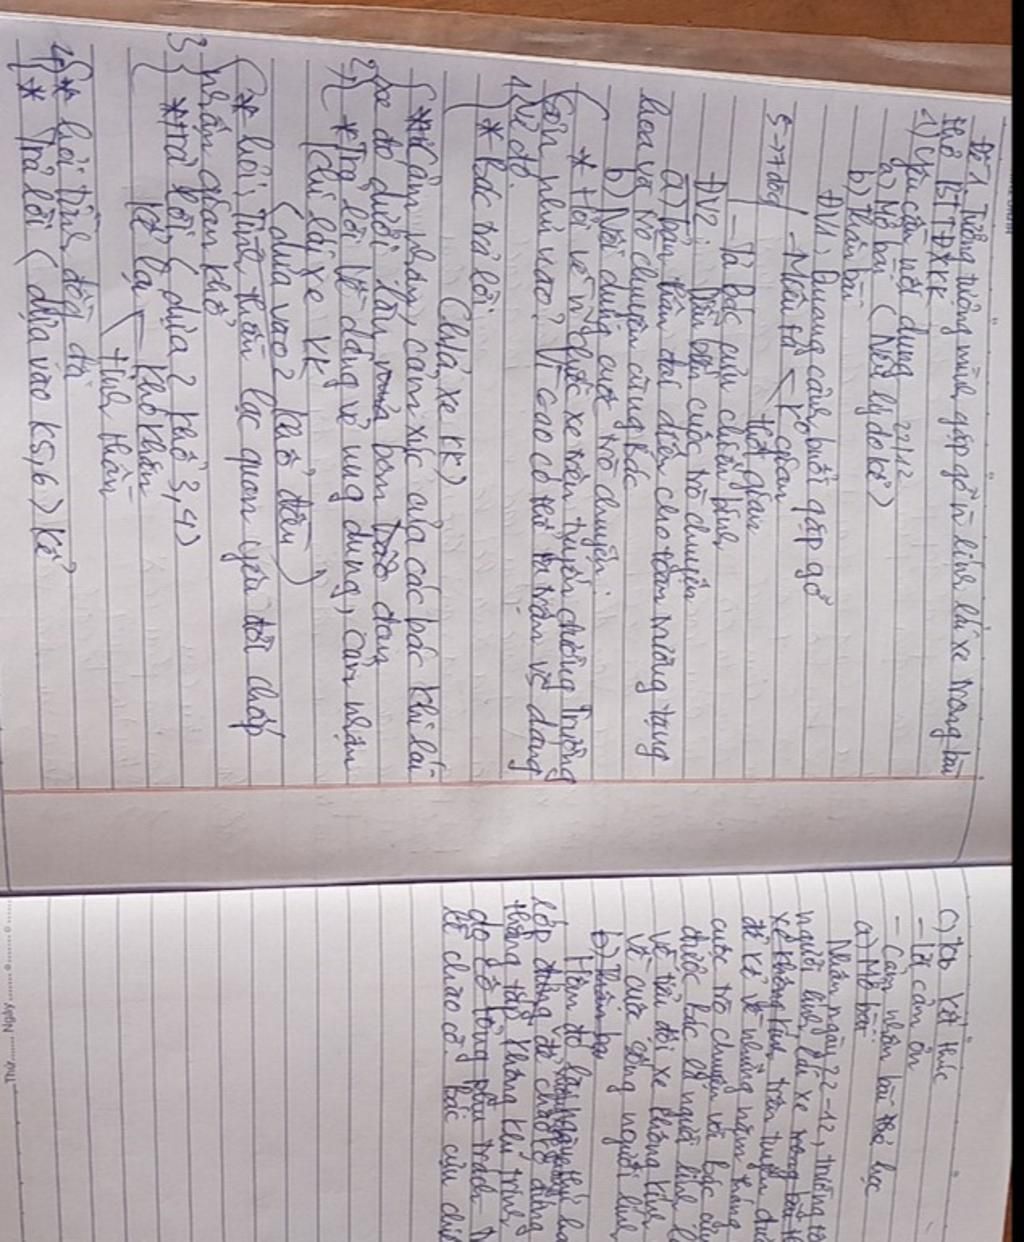 Đề 1. Tưởng tượng mình gặp gỡ n lính lái xe trong bài
thơ BTTĐXKK
1) yêu cầu nội dung 22/12
a) Mở bài (Nêu lý do kể)
b) Thân bài
ĐV1: Quang cảnh buổi gặp gỡ
5 → 7 dòng - Miêu tả < K gian
thời gian
- Tả bác cựu chiến binh
ĐV2: Diễn biến cuộc trò chuyện
a) bản thân đại diện cho toàn trường tặng
hoa và trò chuyện cùng bác
b) Nội dung cuộc trò chuyện
* Hỏi về n chiếc xe trên tuyến đường Trường
Sơn như nào? Vì sao có thể
1, vẻ đó.
* Bác trả lời
(Chiếc xe KK)
* Cảm nhận, cảm xúc của các bác khi lái
xe đó dưới làn mưa bom bão đạn
2, * Trả lời vẻ đẹp về ung dung, cảm nhận
khi lái xe KK
(dựa vào 2 khổ đầu)
* hỏi: Tinh thần lạc quan yêu đời chấp
nhận gian khổ
3 * trả lời (dựa 2 khổ 3,4)
kể lại < khó khăn
tinh thần
4, * hỏi tình đồng đội
* Trả lời (dựa vào K5,6) kể
c) Kb kết thúc
- Lời cảm ơn
- Cảm nhận bài thơ lục
a) Mở bài
Nhân ngày 22-12, trường
người lính lái xe trong bài
xe không kính trên tuyến
để kể về những năm tháng
cuộc trò chuyện với bác
được bác là người lính
về tiểu đội xe không kính
về cuộc sống người lính
b) Thân bài
Hôm đó
lớp để chào cờ
thẳng tắp không khí
đó cô tổng phụ trách
lễ chào cờ. bác cựu
Ngày
Thứ